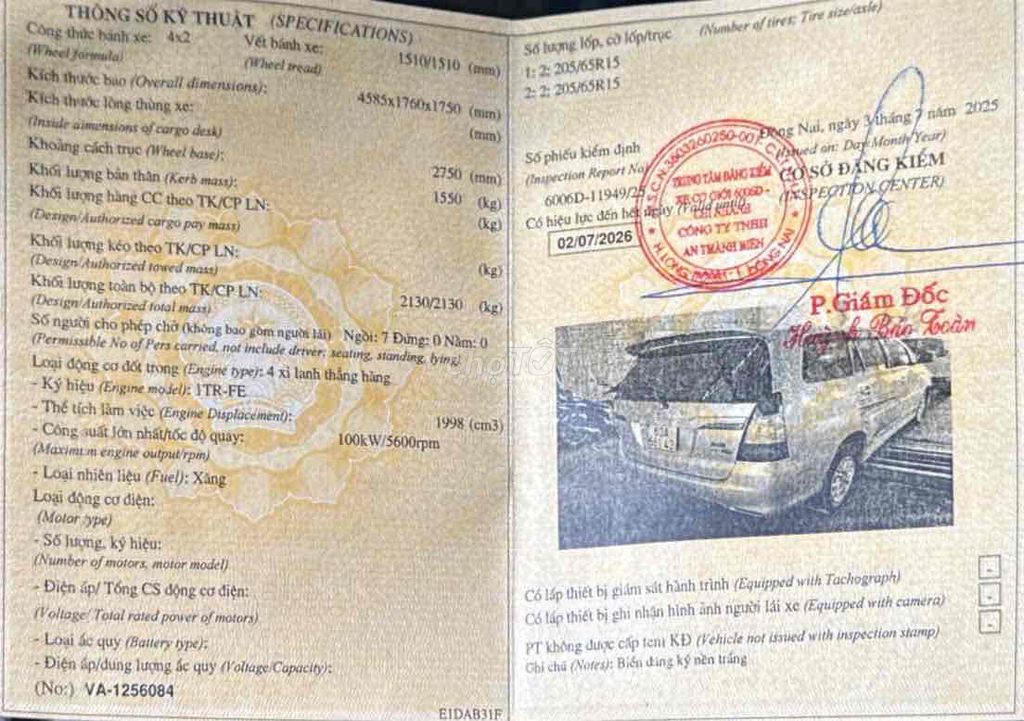 THÔNG SỐ KỸ THUẬT (SPECIFICATIONS)
Công thức bánh xe: 4x2 Vết bánh xe: 1510/1510 (mm)
(Wheel formula) (Wheel tread)
Kích thước bao (Overall dimensions): 4585x1760x1750 (mm)
Kích thước lòng thùng xe: (mm)
(Inside dimensions of cargo desk)
Khoảng cách trục (Wheel base): 2750 (mm)
Khối lượng bản thân (Kerb mass): 1550 (kg)
Khối lượng hàng CC theo TK/CP LN: (kg)
(Design/Authorized cargo pay mass)
Khối lượng kéo theo TK/CP LN: (kg)
(Design/Authorized towed mass)
Khối lượng toàn bộ theo TK/CP LN: 2130/2130 (kg)
(Design/Authorized total mass)
Số người cho phép chở (không bao gồm người lái) Ngồi: 7 Đứng: 0 Nằm: 0
(Permissible No of Pers carried, not include driver; seating, standing, lying)
Loại động cơ đốt trong (Engine type): 4 xi lanh thẳng hàng
- Ký hiệu (Engine model): 1TR-FE
- Thể tích làm việc (Engine Displacement): 1998 (cm3)
- Công suất lớn nhất/tốc độ quay: 100kW/5600rpm
(Maximum engine output/rpm)
- Loại nhiên liệu (Fuel): Xăng
Loại động cơ điện:
(Motor type)
- Số lượng, ký hiệu:
(Number of motors, motor model)
- Điện áp/ Tổng CS động cơ điện:
(Voltage/ Total rated power of motors)
- Loại ắc quy (Battery type):
- Điện áp/dung lượng ắc quy (Voltage/Capacity):
(No:) VA-1256084
E1DAB31F
Số lượng lốp, cỡ lốp/trục (Number of tires; Tire size/axle)
1: 2: 205/65R15
2: 2: 205/65R15
Đồng Nai, ngày 3 tháng 7 năm 2025
(Issued on: Day/Month/Year)
Số phiếu kiểm định
(Inspection Report No)
CƠ SỞ ĐĂNG KIỂM
6006D-11949/25
(INSPECTION CENTER)
Có hiệu lực đến hết ngày (Valid until)
02/07/2026
TRUNG TÂM ĐĂNG KIỂM
XE CƠ GIỚI 6006D -
CÔNG TY TNHH
AN THÀNH HIỂN
P.Giám Đốc
Có lắp thiết bị giám sát hành trình (Equipped with Tachograph)
Có lắp thiết bị ghi nhận hình ảnh người lái xe (Equipped with camera)
PT không được cấp tem KĐ (Vehicle not issued with inspection stamp)
Ghi chú (Notes): Biển đăng ký nền trắng